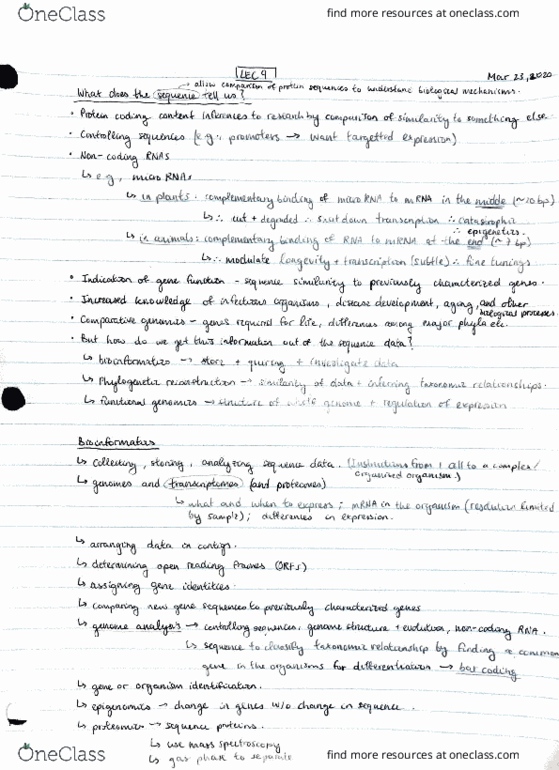 OneClass
find more resources at oneclass.com
LEC 9
Mar 23, 2020
→ allow comparison of protein sequences to understand biological mechanisms.
What does the sequence tell us?
• Protein coding content inferences to research by comparison of similarity to something else.
• Controlling sequences (e.g., promoters → want targetted expression)
• Non-coding RNAs
↳ e.g., micro RNAs
↳ in plants: complementary binding of micro RNA to mRNA in the middle
↳ ∴ cut + degraded ∴ shut down transcription ∴ catastrophic
∴ epigenetics.
↳ in animals: complementary binding of RNA to mRNA at the end (~ 7 bp)
↳ ∴ modulate longevity + transcription (subtle) ∴ fine tunings
• Indication of gene function - sequence similarity to previously characterized genes.
• Increased knowledge of infectious organisms, disease development, aging, and other
biological processes.
• Comparative genomics - genes required for life, differences among major phyla etc.
• But how do we get this information out of the sequence data?
↳ bioinformatics → store + quering + investigate data
↳ Phylogenetic reconstruction → similarity of data + inferring taxonomic relationships.
↳ Functional genomics → structure of whole genome + regulation of expression
Bioinformatics
↳ collecting, storing, analyzing sequence data. (Instructions from 1 cell to a complex/
organized organism.)
↳ genomes and transcriptomes (and proteomes)
↳ what and when to express; mRNA in the organism (resolution limited
by sample); differences in expression.
↳ arranging data in contigs.
↳ determining open reading frames (ORFs)
↳ assigning gene identities.
↳ comparing new gene sequences to previously characterized genes
↳ genome analysis → controlling sequences, genome structure + evolution, non-coding RNA.
↳ sequence to classify taxonomic relationship by finding a common
gene in the organisms for differentiation → bar coding
↳ gene or organism identification.
↳ epigenomics → change in genes w/o change in sequence.
↳ proteomics → sequence proteins.
↳ use mass spectroscopy
↳ gas phase to separate
OneClass
find more resources at oneclass.com